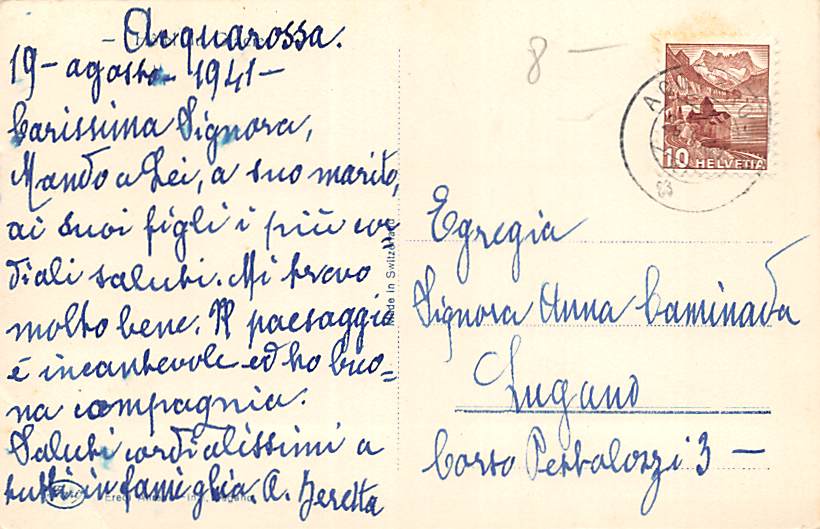 Acquarossa.
19 - agosto - 1941 -
Carissima Signora,
Mando a Lei, a suo marito,
ai suoi figli i più cor
diali saluti. Mi trovo
molto bene. Il paesaggio
è incantevole ed ho buo=
na compagnia.
Saluti cordialissimi a
tutti in famiglia. A. Beretta
Made in Switzerland
8 -
10 HELVETIA
Egregia
Signora Anna Caminada
Lugano
Corso Pestalozzi 3 -